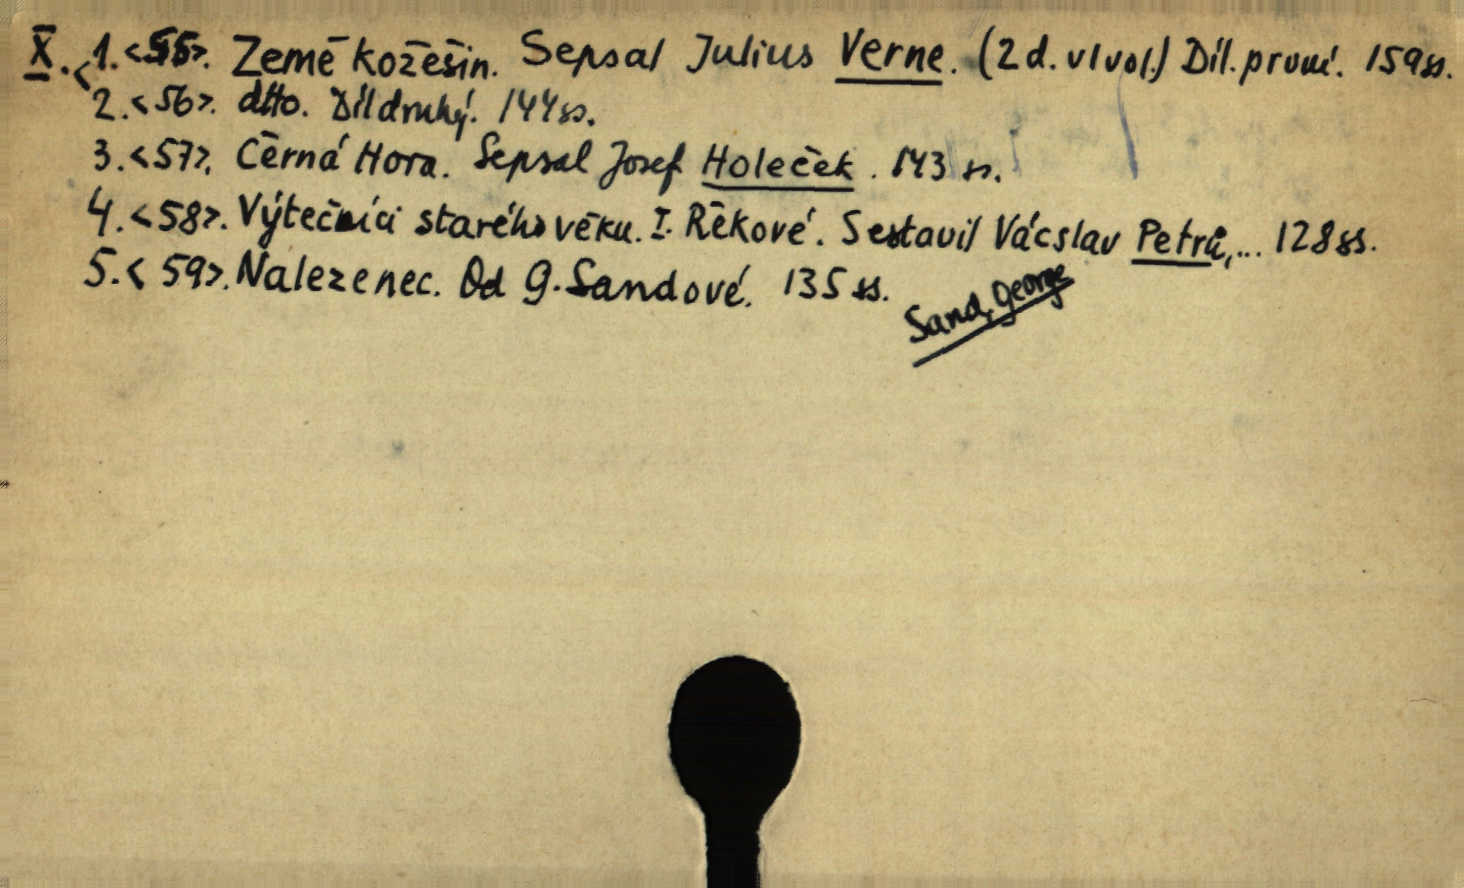 X. < 1. <55>. Země kožešin. Sepsal Julius Verne. (2 d. v 1 vol.) Díl. první. 159 ss.
2. <56>. dtto. Díl druhý. 144 ss.
3. <57>. Černá Hora. Sepsal Josef Holeček. 143 ss.
4. <58>. Výtečníci starého věku. I. Řěkové. Sestavil Vácslav Petrů,... 128 ss.
5. < 59>. Nalezenec. Od G. Sandové. 135 ss.
Sand, George